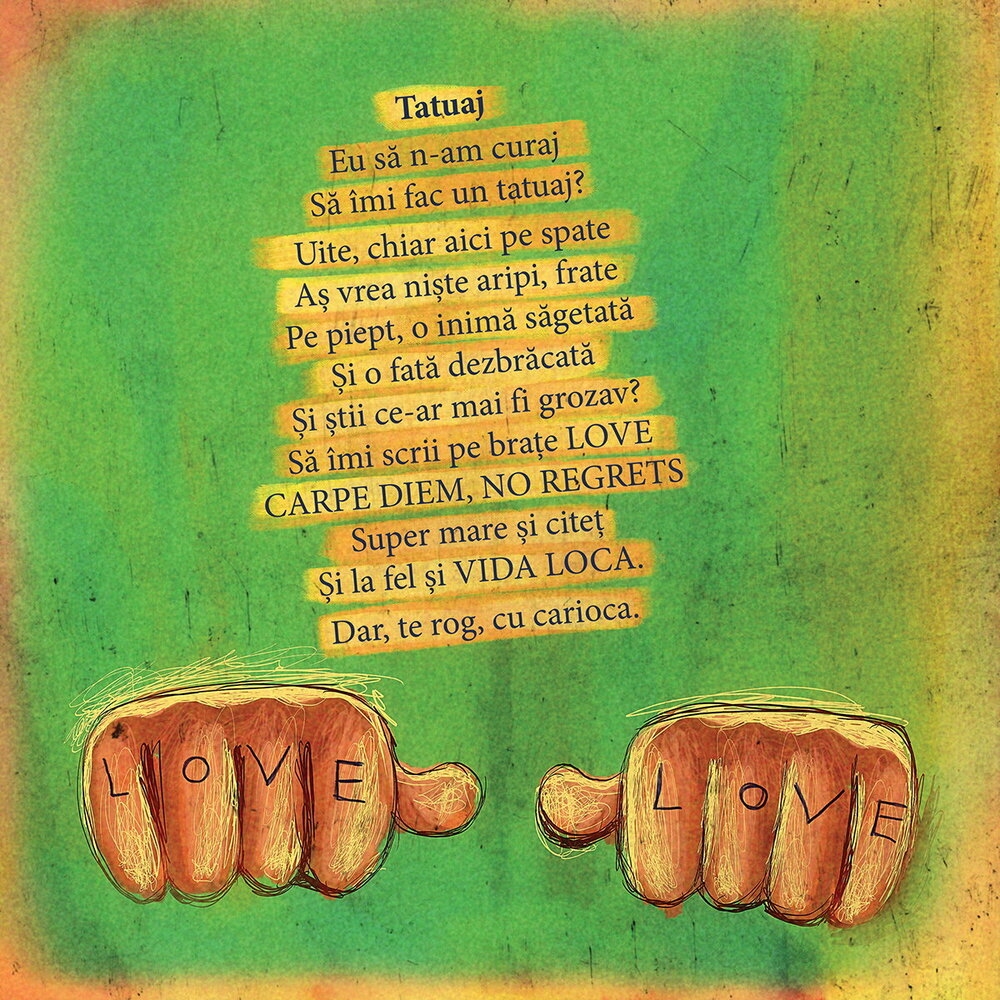 Tatuaj
Eu să n-am curaj
Să îmi fac un tatuaj?
Uite, chiar aici pe spate
Aș vrea niște aripi, frate
Pe piept, o inimă săgetată
Și o fată dezbrăcată
Și știi ce-ar mai fi grozav?
Să îmi scrii pe brațe LOVE
CARPE DIEM, NO REGRETS
Super mare și citeț
Și la fel și VIDA LOCA.
Dar, te rog, cu carioca.
LOVE
LOVE